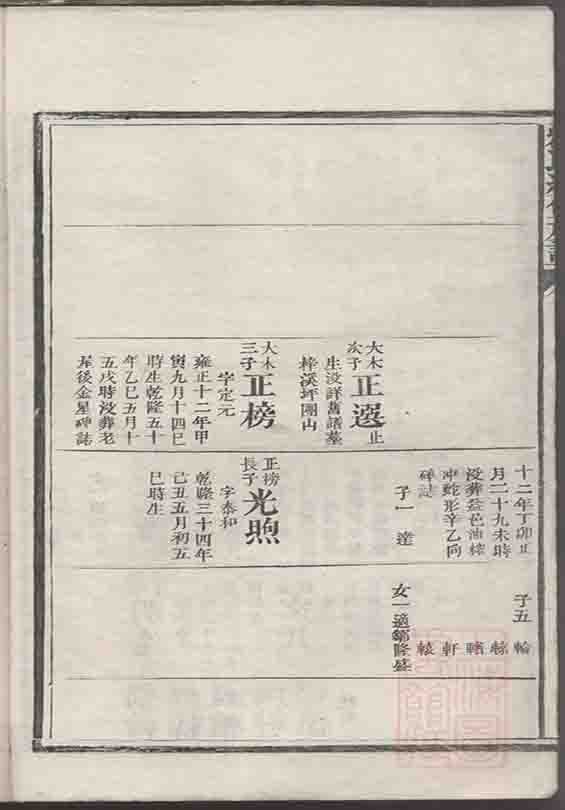 大木
次子
正選
止
生沒詳舊譜墓
梓溪坪團山
大木
三子
正榜
字定元
雍正十二年甲
寅九月十四巳
時生乾隆五十
年乙巳五月十
五戌時沒葬老
屋後金星碑誌
十二年丁卯正
月二十九未時
沒葬益邑油榨
冲蛇形辛乙向
碑誌
子一 達
正榜
長子
光煦
字泰和
乾隆三十四年
己丑五月初五
巳時生
子五 輪
軒
轅
女一適鄒隆盛